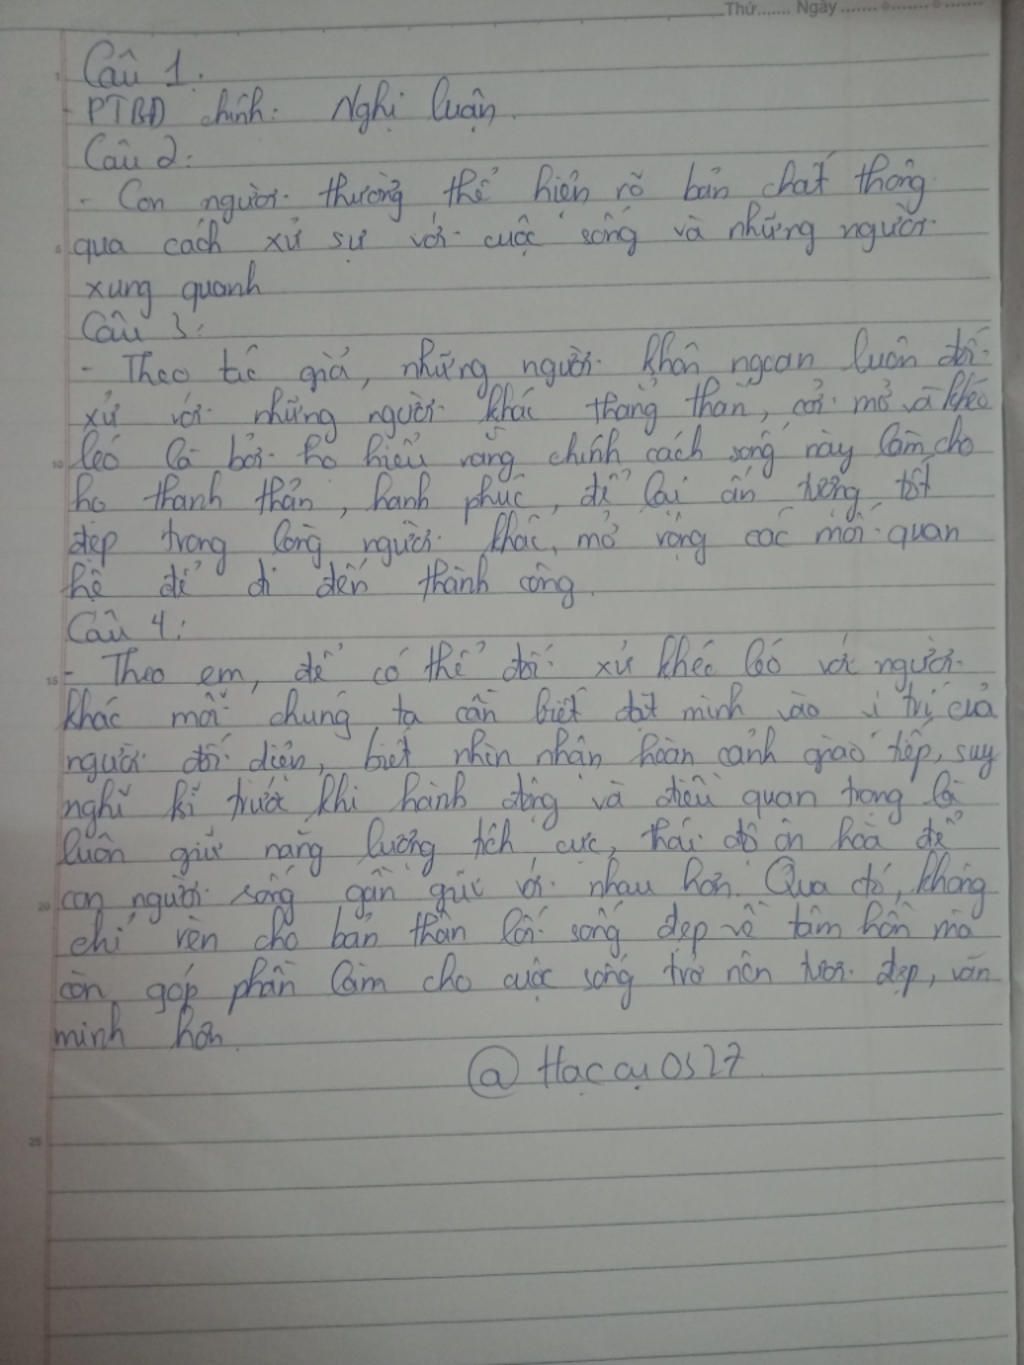 Thứ....... Ngày
Câu 1.
- PTBĐ chính: Nghị luận.
Câu 2:
- Con người thường thể hiện rõ bản chất thông
5 qua cách xử sự với cuộc sống và những người
xung quanh
Câu 3:
- Theo tác giả, những người khôn ngoan luôn đối
xử với những người khác thẳng thắn, cởi mở và khéo
10 léo là bởi họ hiểu rằng chính cách sống này làm cho
họ thanh thản, hạnh phúc, để lại ấn tượng tốt
đẹp trong lòng người khác, mở rộng các mối quan
hệ để đi đến thành công.
Câu 4:
15 - Theo em, để có thể đối xử khéo léo với người
khác mỗi chúng ta cần biết đặt mình vào vị trí của
người đối diện, biết nhìn nhận hoàn cảnh giao tiếp, suy
nghĩ kĩ trước khi hành động và điều quan trọng là
luôn giữ năng lượng tích cực, thái độ ôn hoà để
20 con người sống gần gũi với nhau hơn. Qua đó, không
chỉ rèn cho bản thân lối sống đẹp về tâm hồn mà
còn góp phần làm cho cuộc sống trở nên tươi đẹp, văn
minh hơn.
@ Haccau0527
25